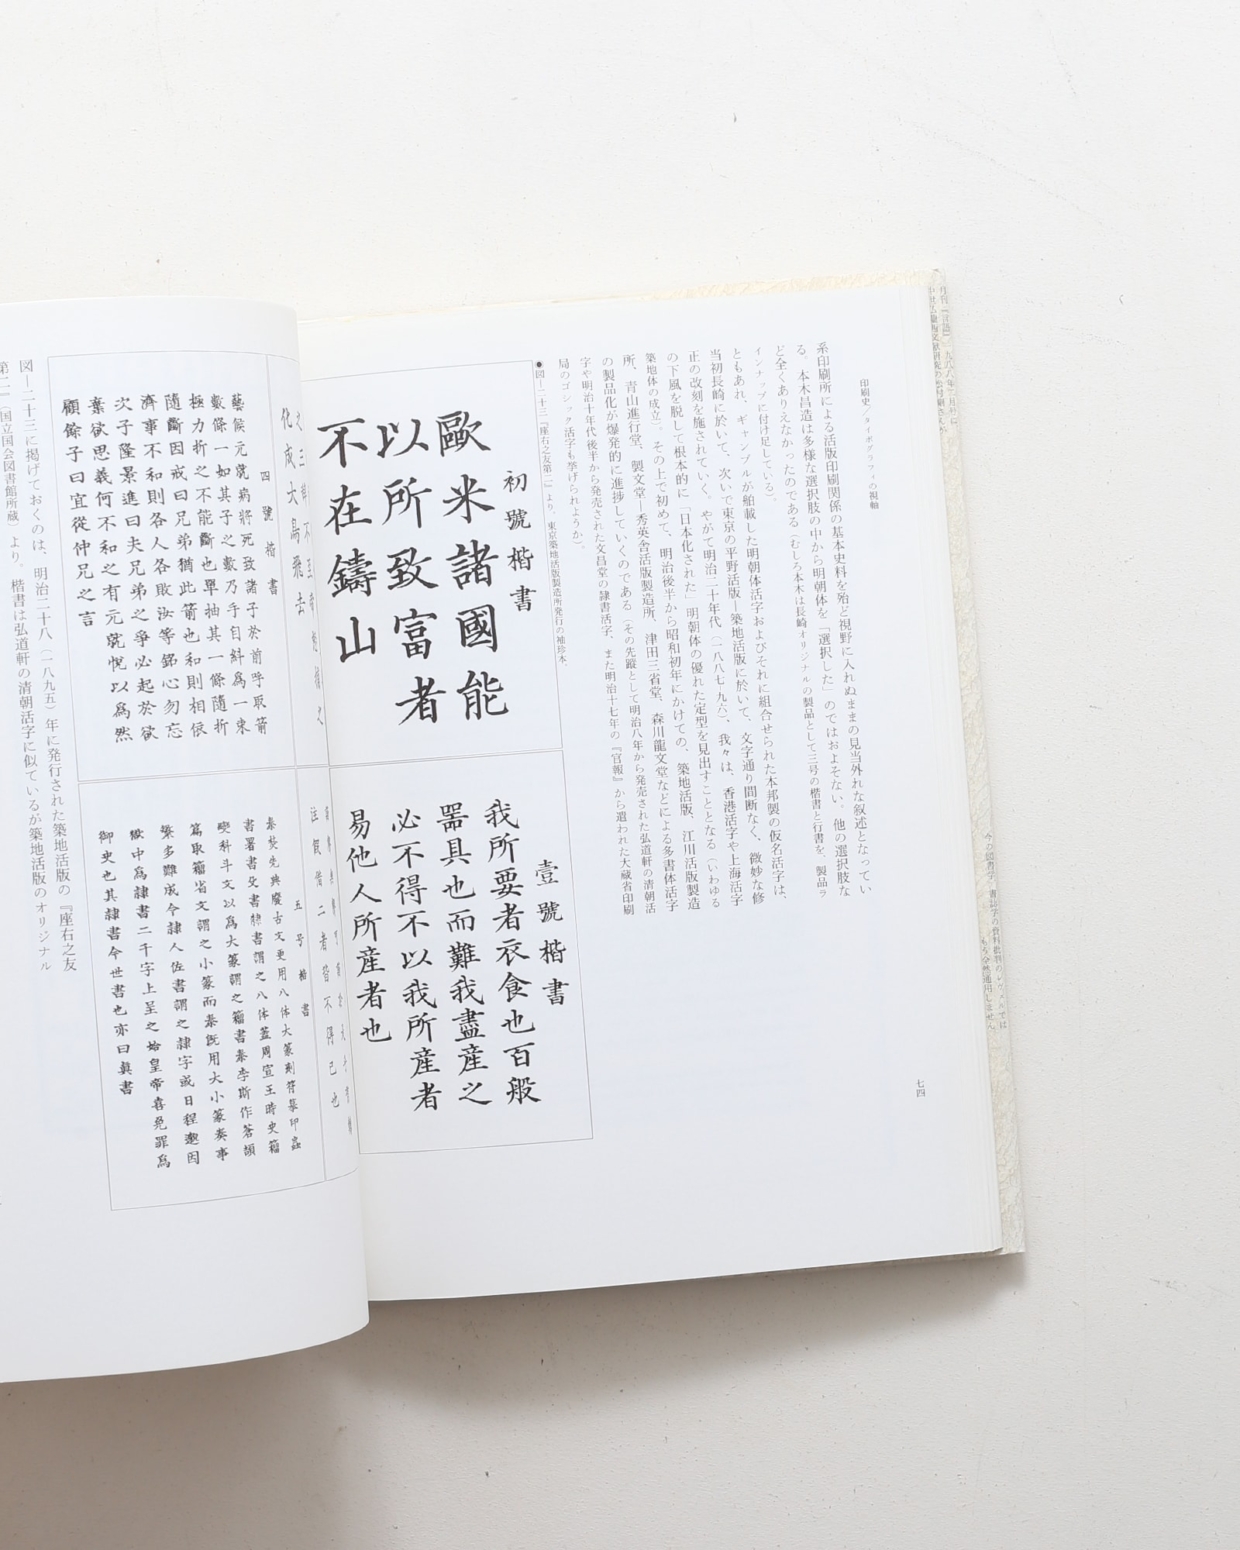 印刷史／タイポグラフィの視軸
系印刷所による活版印刷関係の基本史料を殆ど視野に入れぬままの見当外れな叙述となってい
る。本木昌造は多様な選択肢の中から明朝体を「選択した」のではおよそない。他の選択肢な
ど全くありえなかったのである（むしろ本木は長崎オリジナルの製品として三号の楷書と行書を、製品ラ
インナップに付け足している）。
ともあれ、ギャンブルが舶載した明朝体活字およびそれに組合せられた本邦製の仮名活字は、
当初長崎に於いて、次いで東京の平野活版—築地活版に於いて、文字通り間断なく、微妙な修
正の改刻を施されていく。やがて明治二十年代（一八八七–九六）、我々は、香港活字や上海活字
の下風を脱して根本的に「日本化された」明朝体の優れた定型を見出すこととなる（いわゆる
築地体の成立）。その上で初めて、明治後半から昭和初年にかけての、築地活版、江川活版製造
所、青山進行堂、製文堂—秀英舎活版製造所、津田三省堂、森川龍文堂などによる多書体活字
の製品化が爆発的に進捗していくのである（その先蹤として明治八年から発売された弘道軒の清朝活
字や明治十年代後半から発売された文昌堂の隷書活字、また明治十七年の『官報』から遣われた大蔵省印刷
局のゴシック活字も挙げられようか）。
●図—二十三『座右之友第二』より、東京築地活版製造所発行の袖珍本
初號楷書
歐米諸國能
以所致富者
不在鑄山
壹號楷書
我所要者衣食也百般
器具也而難我盡產之
必不得不以我所產者
易他人所產者也
七四
化成大鳥飛去
四號楷書
藝候元就病將死致諸子於前呼取箭
數條一如其子之數乃手自糾為一束
極力折之不能斷也單抽其一條隨折
隨斷因戒曰兄弟猶此箭也和則相依
濟事不和則各人各敗汝等銘心勿忘
次子隆景進曰夫兄弟之爭必起於欲
棄欲思義何不和之有元就悅以為然
顧餘子曰宜從仲兄之言
註假借二者皆不得已也
五号楷書
秦焚先典廢古文更用八体大篆刻符摹印蟲
書署書殳書隸書謂之八体蓋周宣王時史籀
變科斗文以為大篆謂之籀書秦李斯作蒼頡
篇取籀省文謂之小篆而秦既用大小篆奏事
繁多難成令隷人佐書謂之隷字或曰程邈因
獄中為隷書二千字上呈之始皇帝喜免罪為
御史也其隷書今世書也亦曰眞書
図—二十三に掲げておくのは、明治二十八（一八九五）年に発行された築地活版の『座右之友
第二』（国立国会図書館所蔵）より。楷書は弘道軒の清朝活字に似ているが築地活版のオリジナル